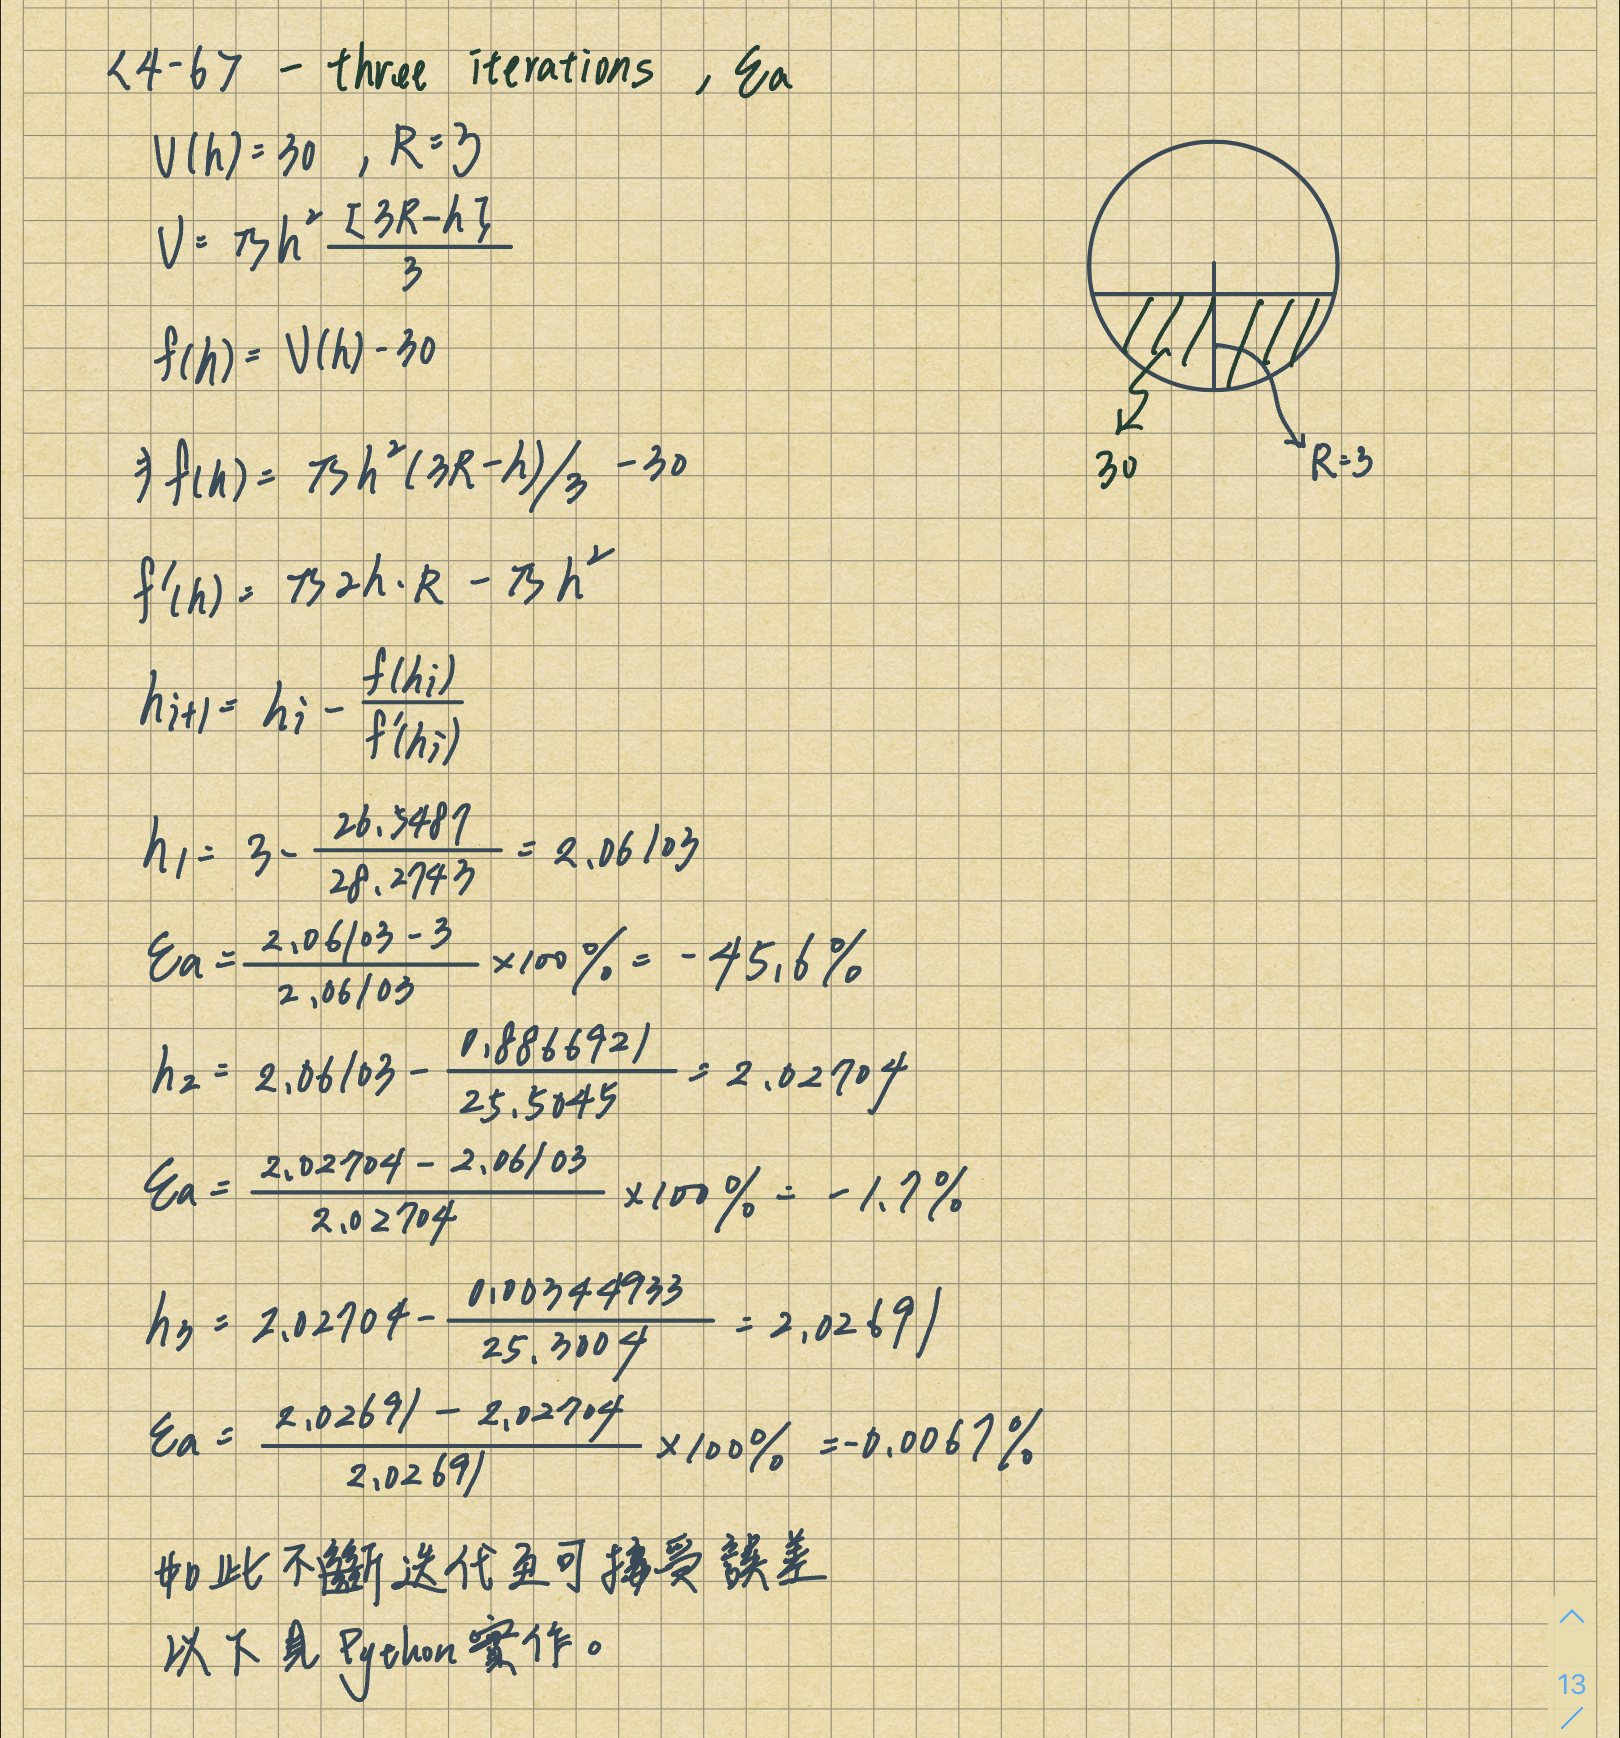 <4-6> - three iterations , εa
V(h) = 30 , R = 3
V = πh² [3R-h] / 3
f(h) = V(h) - 30
30
R=3
⇒ f(h) = πh²(3R-h)/3 - 30
f'(h) = π2h·R - πh²
hi+1 = hi - f(hi) / f'(hi)
h1 = 3 - 26.5487 / 28.2743 = 2.06103
εa = 2.06103 - 3 / 2.06103 ×100% = -45.6%
h2 = 2.06103 - 0.8866921 / 25.5045 = 2.02704
εa = 2.02704 - 2.06103 / 2.02704 ×100% = -1.7%
h3 = 2.02704 - 0.00344933 / 25.3004 = 2.02691
εa = 2.02691 - 2.02704 / 2.02691 ×100% = -0.0067%
如此不斷迭代至可接受誤差
以下見Python實作。
13